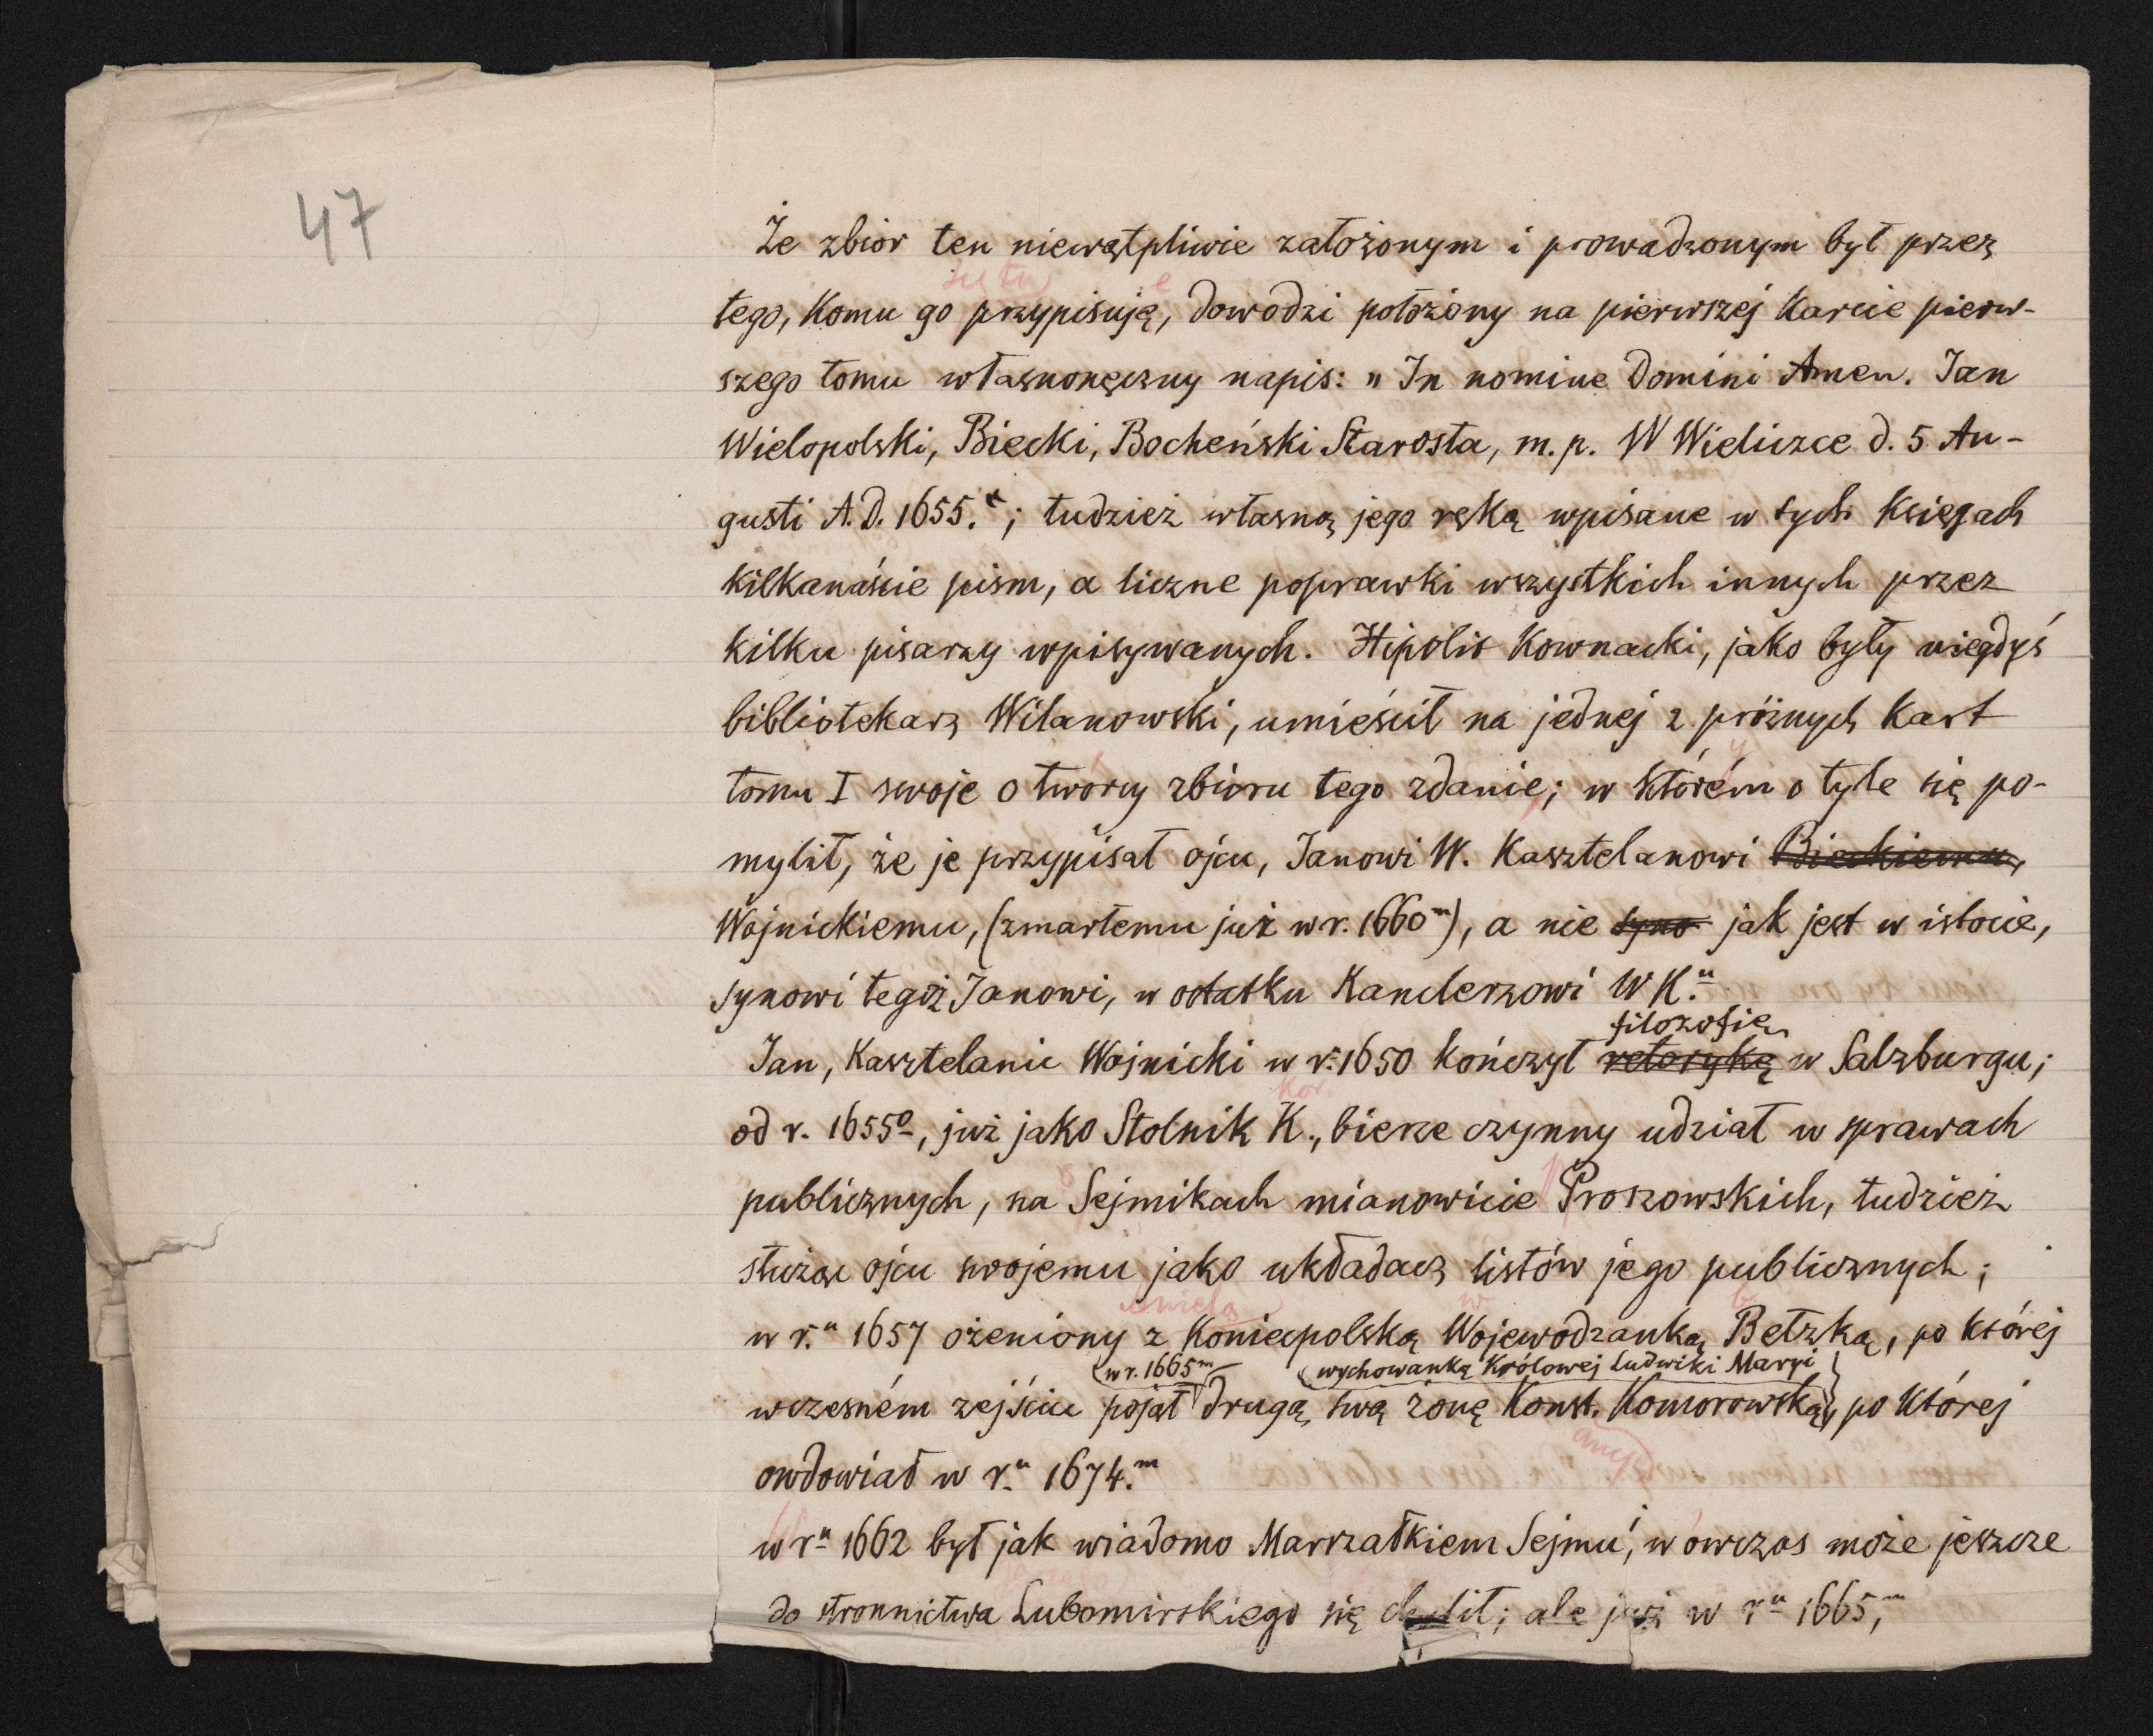 47
Że zbiór ten niewątpliwie założonym i prowadzonym był przez
się tu e
tego, komu go przypisują, dowodzi położony na pierwszej karcie pierw-
szego tomu własnoręczny napis: „In nomine Domini Amen. Jan
Wielopolski, Biecki, Bocheński Starosta, m. p. W Wieliczce d. 5 Au-
gusti A. D. 1655.“; tudzież własną jego ręką wpisane w tych księgach
kilkanaście pism, a liczne poprawki wszystkich innych przez
kilku pisarzy wpisywanych. Hipolit Kownacki, jako były niegdyś
bibliotekarz Wilanowski, umieścił na jednej z próżnych kart
y
tomu I swoje o twórcy zbioru tego zdanie; w którém o tyle się po-
mylił, że je przypisał ojcu, Janowi W. Kasztelanowi Bieckiemu,
Wojnickiemu, (zmarłemu już w r. 1660m), a nie syno jak jest w istocie,
synowi tegoż Janowi, w ostatku Kanclerzowi W K.u
filozofię
Jan, Kasztelanic Wojnicki w r. 1650 kończył retorykę w Salzburgu;
kor.
od r. 1655o, już jako Stolnik K., bierze czynny udział w sprawach
s p
publicznych, na Sejmikach mianowicie Proszowskich, tudzież
służąc ojcu swojemu jako układacz listów jego publicznych;
Anielą w b
w r.u 1657 ożeniony z Koniecpolską Wojewodzanką Bełzką, po której
(w r. 1665m) (wychowankę Królowej Ludwiki Maryi)
wczesném zejściu pojął drugą swą żonę Konst. Komorowską, po której
ancyę
owdowiał w r.u 1674.m
W r.u 1662 był jak wiadomo Marszałkiem Sejmu, wówczas może jeszcze
do stronnictwa Lubomirskiego się chylił; ale już w r.u 1665,m